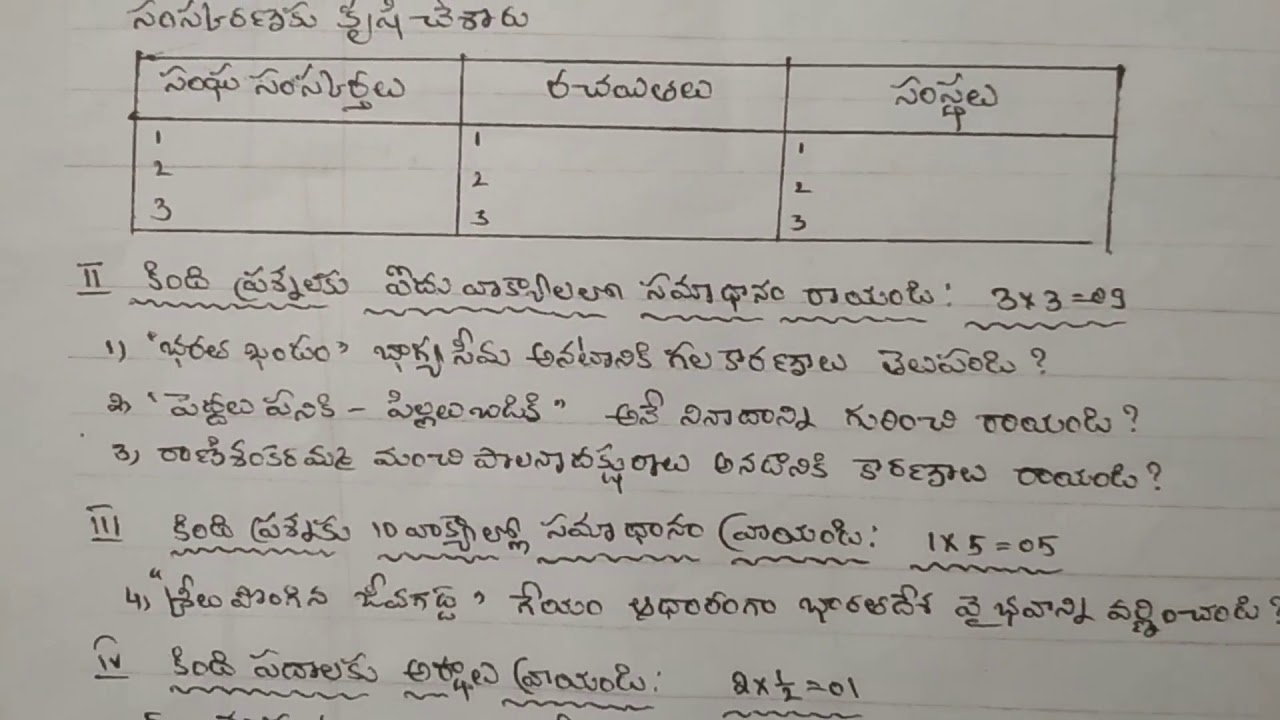 సంస్కరణకు కృషి చేశారు
సంఘ సంస్కర్తలు రచయితలు సంస్థలు
1 1 1
2 2 2
3 3 3
II కింది ప్రశ్నలకు ఐదు వాక్యాలలో సమాధానం రాయండి: 3×3=09
1) "భరత ఖండం" భాగ్యసీమ అనటానికి గల కారణాలు తెలుపండి?
2) "పెద్దలు పనికి - పిల్లలు బడికి" అనే నినాదాన్ని గురించి రాయండి?
3) రాణిశంకరమ్మ మంచి పాలనాదక్షురాలు అనడానికి కారణాలు రాయండి?
III కింది ప్రశ్నకు 10 వాక్యాల్లో సమాధానం వ్రాయండి: 1×5=05
4) "శ్రీలు పొంగిన జీవగడ్డ" గేయం ఆధారంగా భారతదేశ వైభవాన్ని వర్ణించండి?
IV కింది పదాలకు అర్థాలు వ్రాయండి: 2×½=01